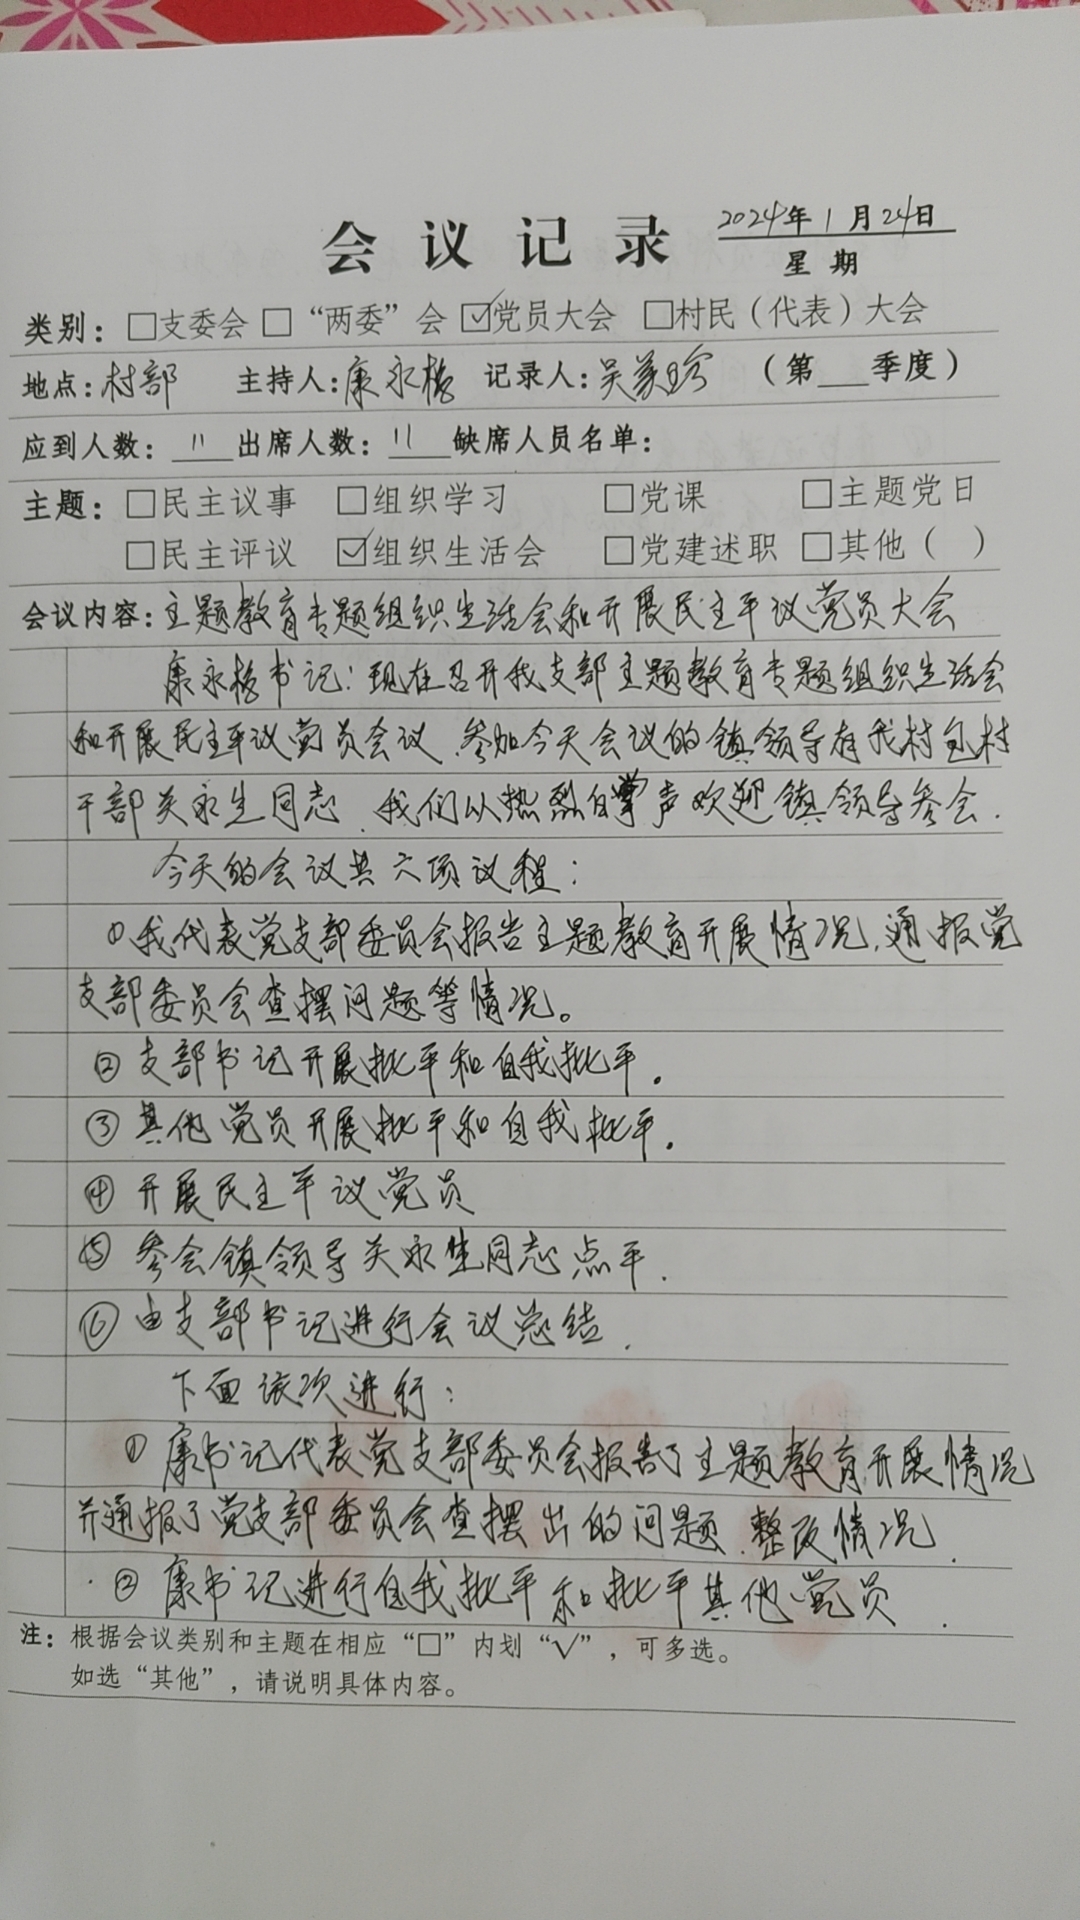 会议记录 2024年1月24日
星期
类别：□支委会 □“两委”会 ☑党员大会 □村民（代表）大会
地点：村部 主持人：康永格 记录人：吴美珍 （第___季度）
应到人数：11 出席人数：11 缺席人员名单：
主题：□民主议事 □组织学习 □党课 □主题党日
□民主评议 ☑组织生活会 □党建述职 □其他（ ）
会议内容：主题教育专题组织生活会和开展民主平议党员大会
康永格书记：现在召开我支部主题教育专题组织生活会
和开展民主平议党员会议、参加今天会议的镇领导有我村包村
干部关永生同志、我们以热烈的掌声欢迎镇领导参会.
今天的会议共六项议程：
①我代表党支部委员会报告主题教育开展情况,通报党
支部委员会查摆问题等情况。
②支部书记开展批平和自我批平。
③其他党员开展批平和自我批平。
④开展民主平议党员
⑤参会镇领导关永生同志点平.
⑥由支部书记进行会议总结.
下面依次进行：
①康书记代表党支部委员会报告了主题教育开展情况
并通报了党支部委员会查摆出的问题、整改情况.
②康书记进行自我批平和批平其他党员.
注：根据会议类别和主题在相应“□”内划“√”，可多选。
如选“其他”，请说明具体内容。